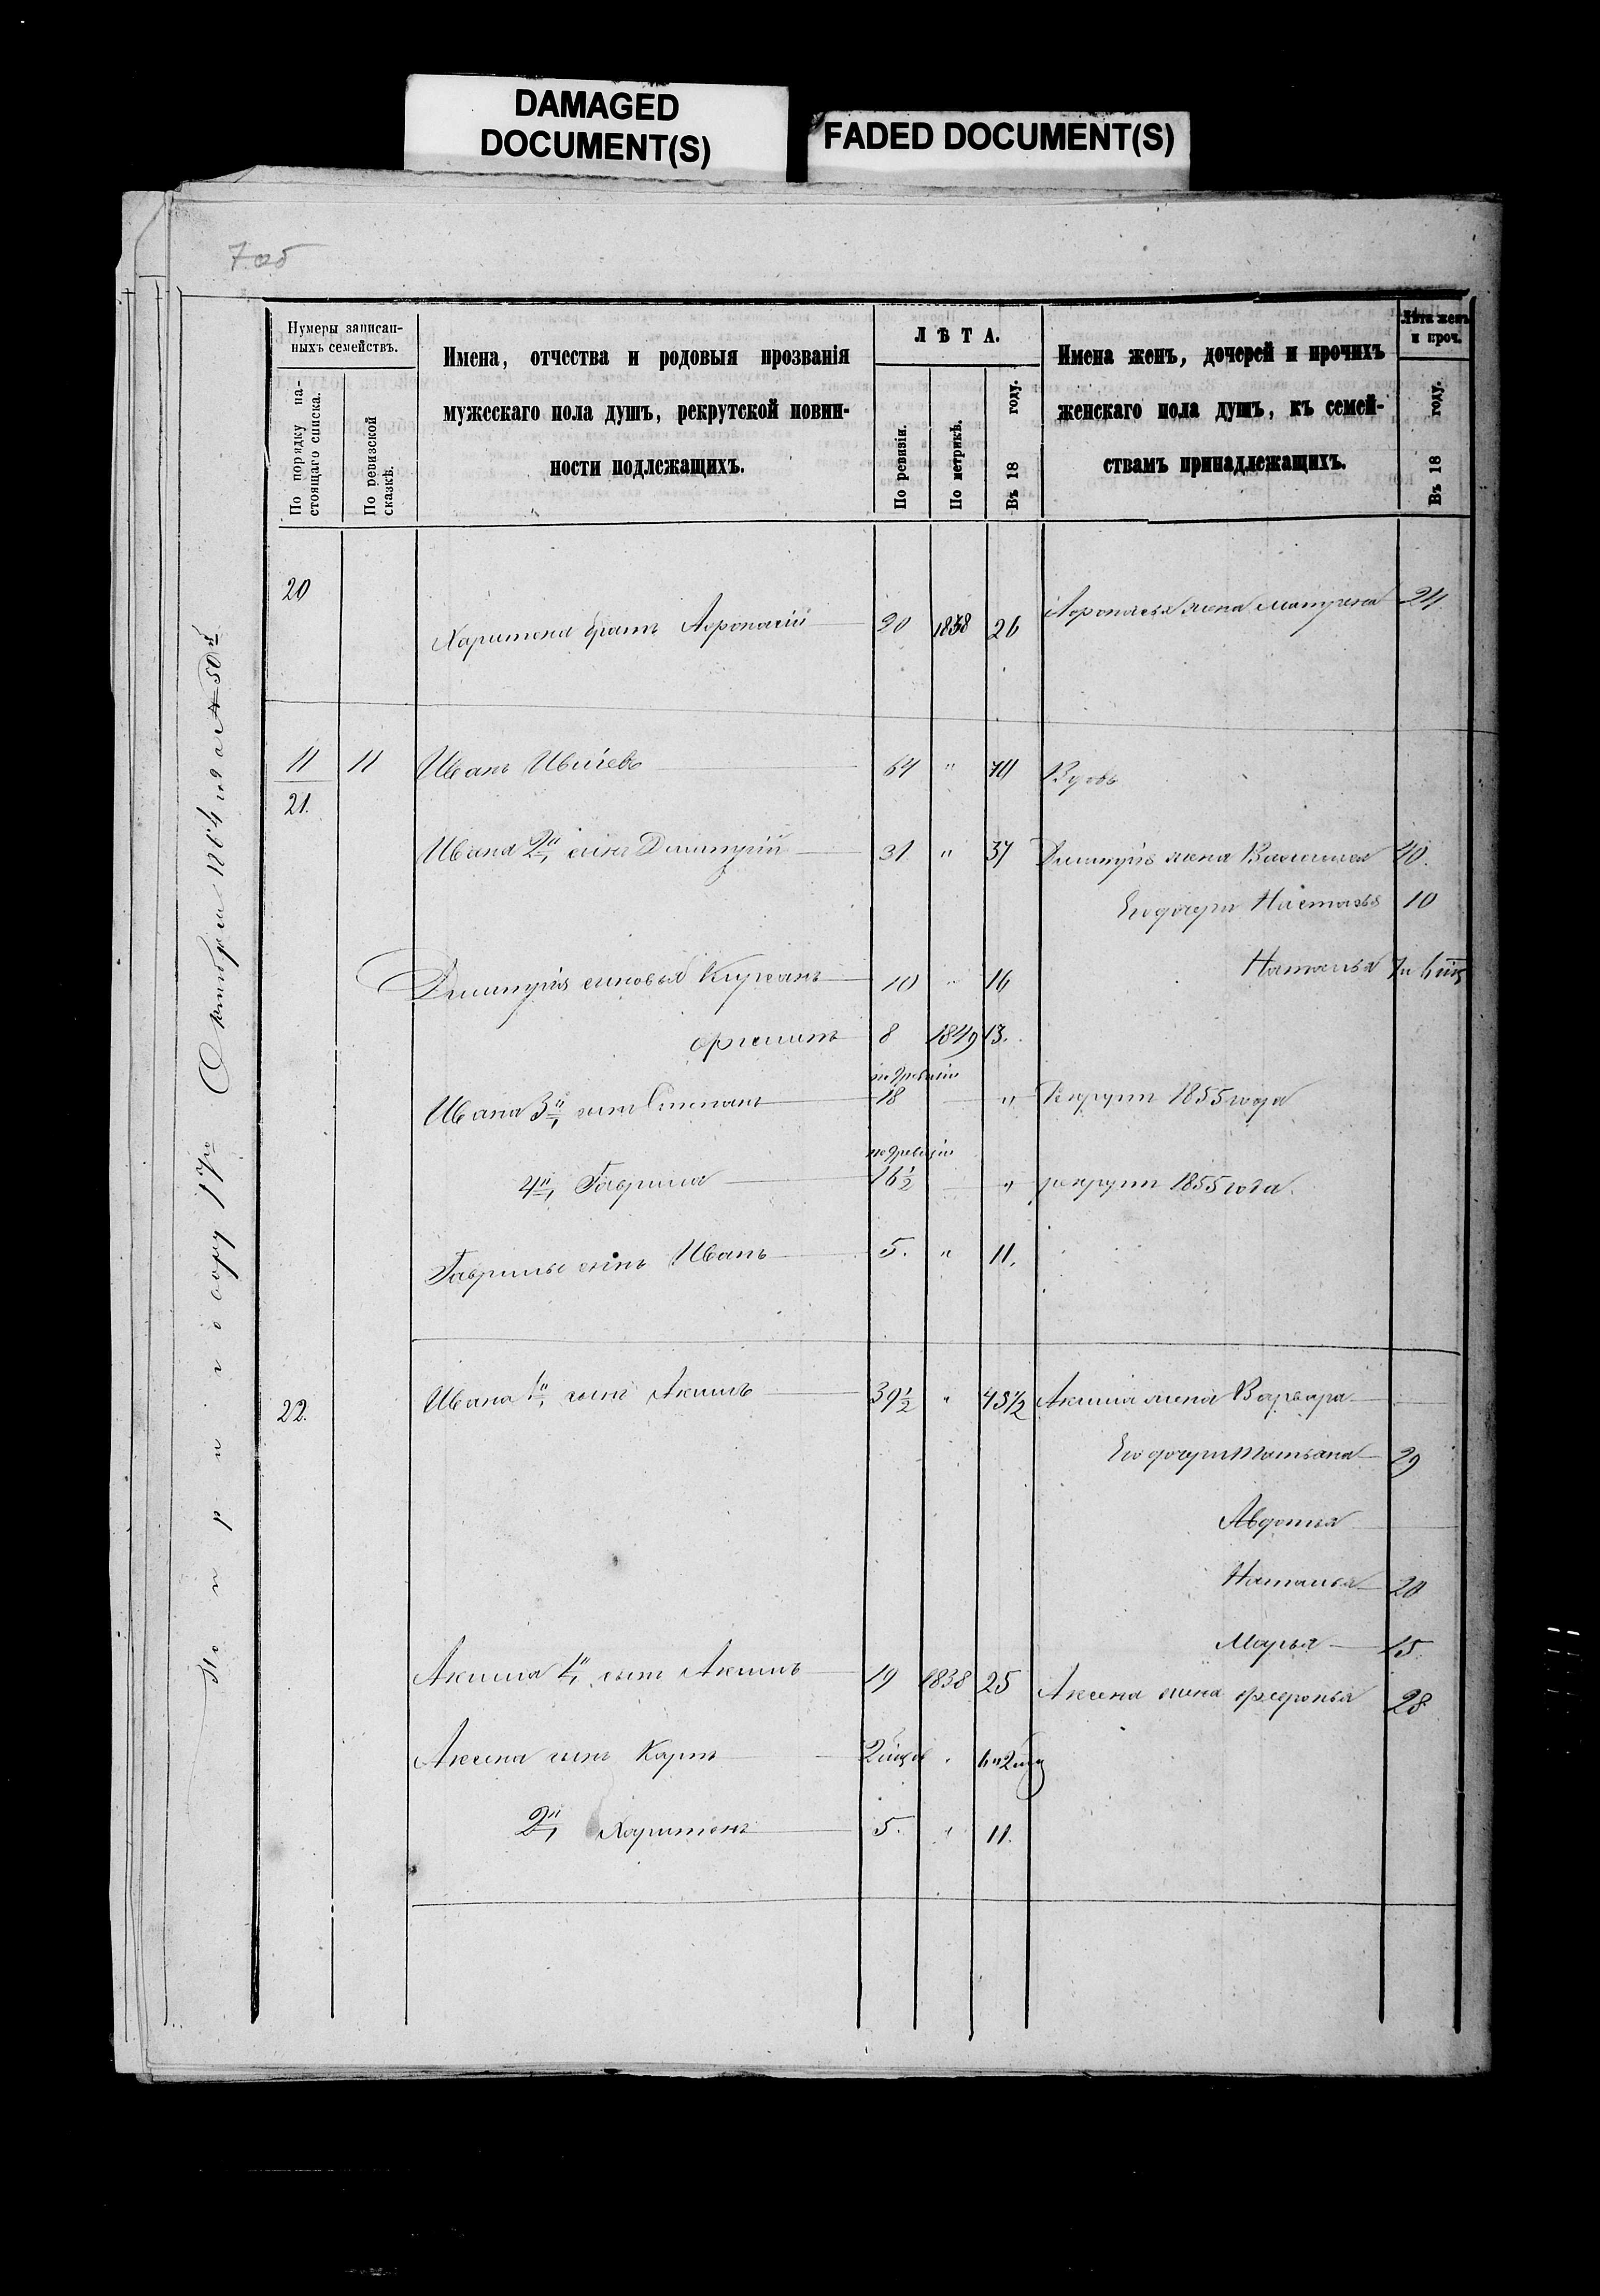 DAMAGED
DOCUMENT(S)
FADED DOCUMENT(S)
7 об
Нумеры записан-
ныхъ семействъ.
По порядку на-
стоящаго списка.
По ревизской
сказкѣ.
Имена, отчества и родовыя прозванія
мужескаго пола душъ, рекрутской повин-
ности подлежащихъ.
ЛѢТА.
По ревизіи.
По метрикѣ.
Въ 18 году.
Имена женъ, дочерей и прочихъ
женскаго пола душъ, къ семей-
ствамъ принадлежащихъ.
Лѣта женъ
и проч.
Въ 18 году.
20
Харитона братъ Афонасій 20 1838 26 Афонасья жена Матрена 24
11 11 Иванъ 64 " 70 Вдовъ
21.
Ивана 2й сынъ Дмитрій 31. " 37 Дмитрія жена 40.
Его дочери Настасья 10
Дмитрія сыновья 10 " 16 Наталья 7 и 6 мѣц
8 1849 13.
Ивана 3й сынъ Степанъ по ревизіи 18 " Рекрутъ 1855 года
4й Гаврила по ревизіи 16½ " рекрутъ 1855 года.
Гаврилы сынъ Иванъ 5. " 11.
22. Ивана 1й сынъ Акимъ 39½ " 45½ Акима жена Варвара
Его дочери Татьяна 29
Авдотья
Наталья 20
Марья 15.
Акима 1й сынъ 19 1838 25 жена 28
сынъ Карпъ 2 мѣц " 6 и 2 мѣц
2й Харитонъ 5. " 11.